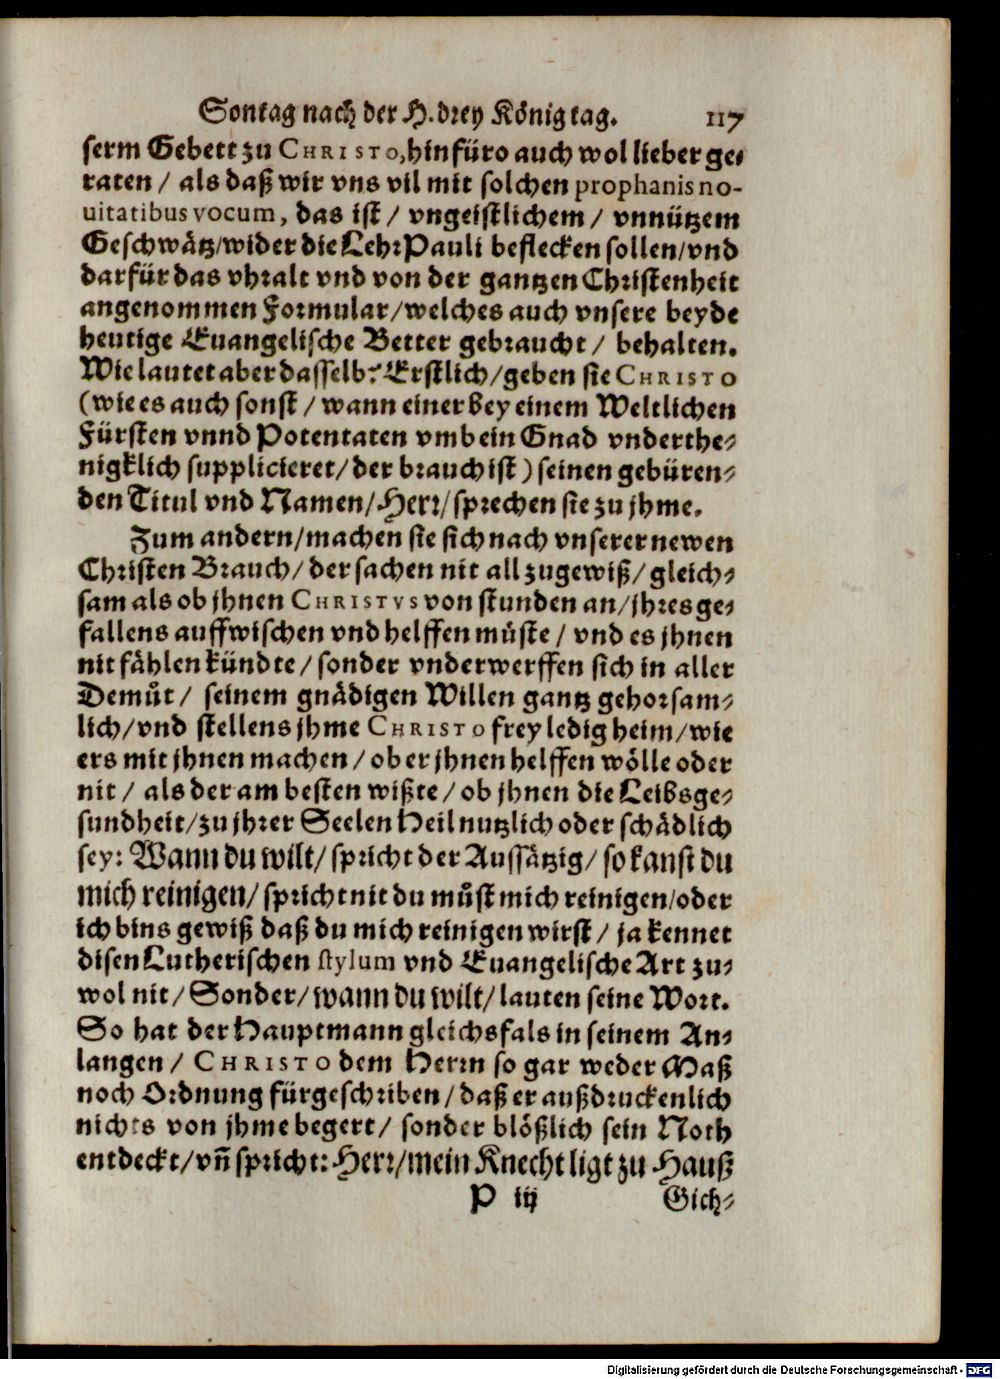 Sontag nach der H. drey König tag. 117
serm Gebett zu CHRISTO, hinfüro auch wol lieber ge-
raten / als daß wir vns vil mit solchen prophanis no-
uitatibus vocum, das ist / vngeistlichem / vnnützem
Geschwätz/wider die Lehr Pauli beflecken sollen/vnd
darfür das vhralt vnd von der gantzen Christenheit
angenommen Formular/welches auch vnsere beyde
heutige Euangelische Better gebraucht / behalten.
Wie lautet aber dasselb? Erstlich/geben sie CHRISTO
(wie es auch sonst / wann einer bey einem Weltlichen
Fürsten vnnd Potentaten vmb ein Gnad vnderthe-
nigklich supplicieret/der brauch ist) seinen gebüren-
den Titul vnd Namen/Herr/sprechen sie zu jhme.
Zum andern/machen sie sich nach vnserer newen
Christen Brauch/der sachen nit all zugewiß/gleich-
sam als ob jhnen CHRISTVS von stunden an/jhres ge-
fallens auffwischen vnd helffen müste / vnd es jhnen
nit fählen kündte/sonder vnderwerffen sich in aller
Demůt / seinem gnädigen Willen gantz gehorsam-
lich/vnd stellens jhme CHRISTO frey ledig heim/wie
ers mit jhnen machen / ob er jhnen helffen wölle oder
nit / als der am besten wißte / ob jhnen die Leibsge-
sundheit/zu jhrer Seelen Heil nutzlich oder schädlich
sey: Wann du wilt/ spricht der Aussätzig/ so kanst du
mich reinigen/ spricht nit du můst mich reinigen/oder
ich bins gewiß daß du mich reinigen wirst / ja kennet
disen Lutherischen stylum vnd Euangelische Art zu-
wol nit/ Sonder/wann du wilt/ lauten seine Wort.
So hat der Hauptmann gleichsfals in seinem An-
langen / CHRISTO dem Herrn so gar weder Maß
noch Ordnung fürgeschriben/daß er außdruckenlich
nichts von jhme begert/ sonder blößlich sein Noth
entdeckt/vn̄ spricht: Herr/mein Knecht ligt zu Hauß
P iij Gich-
Digitalisierung gefördert durch die Deutsche Forschungsgemeinschaft - DFG